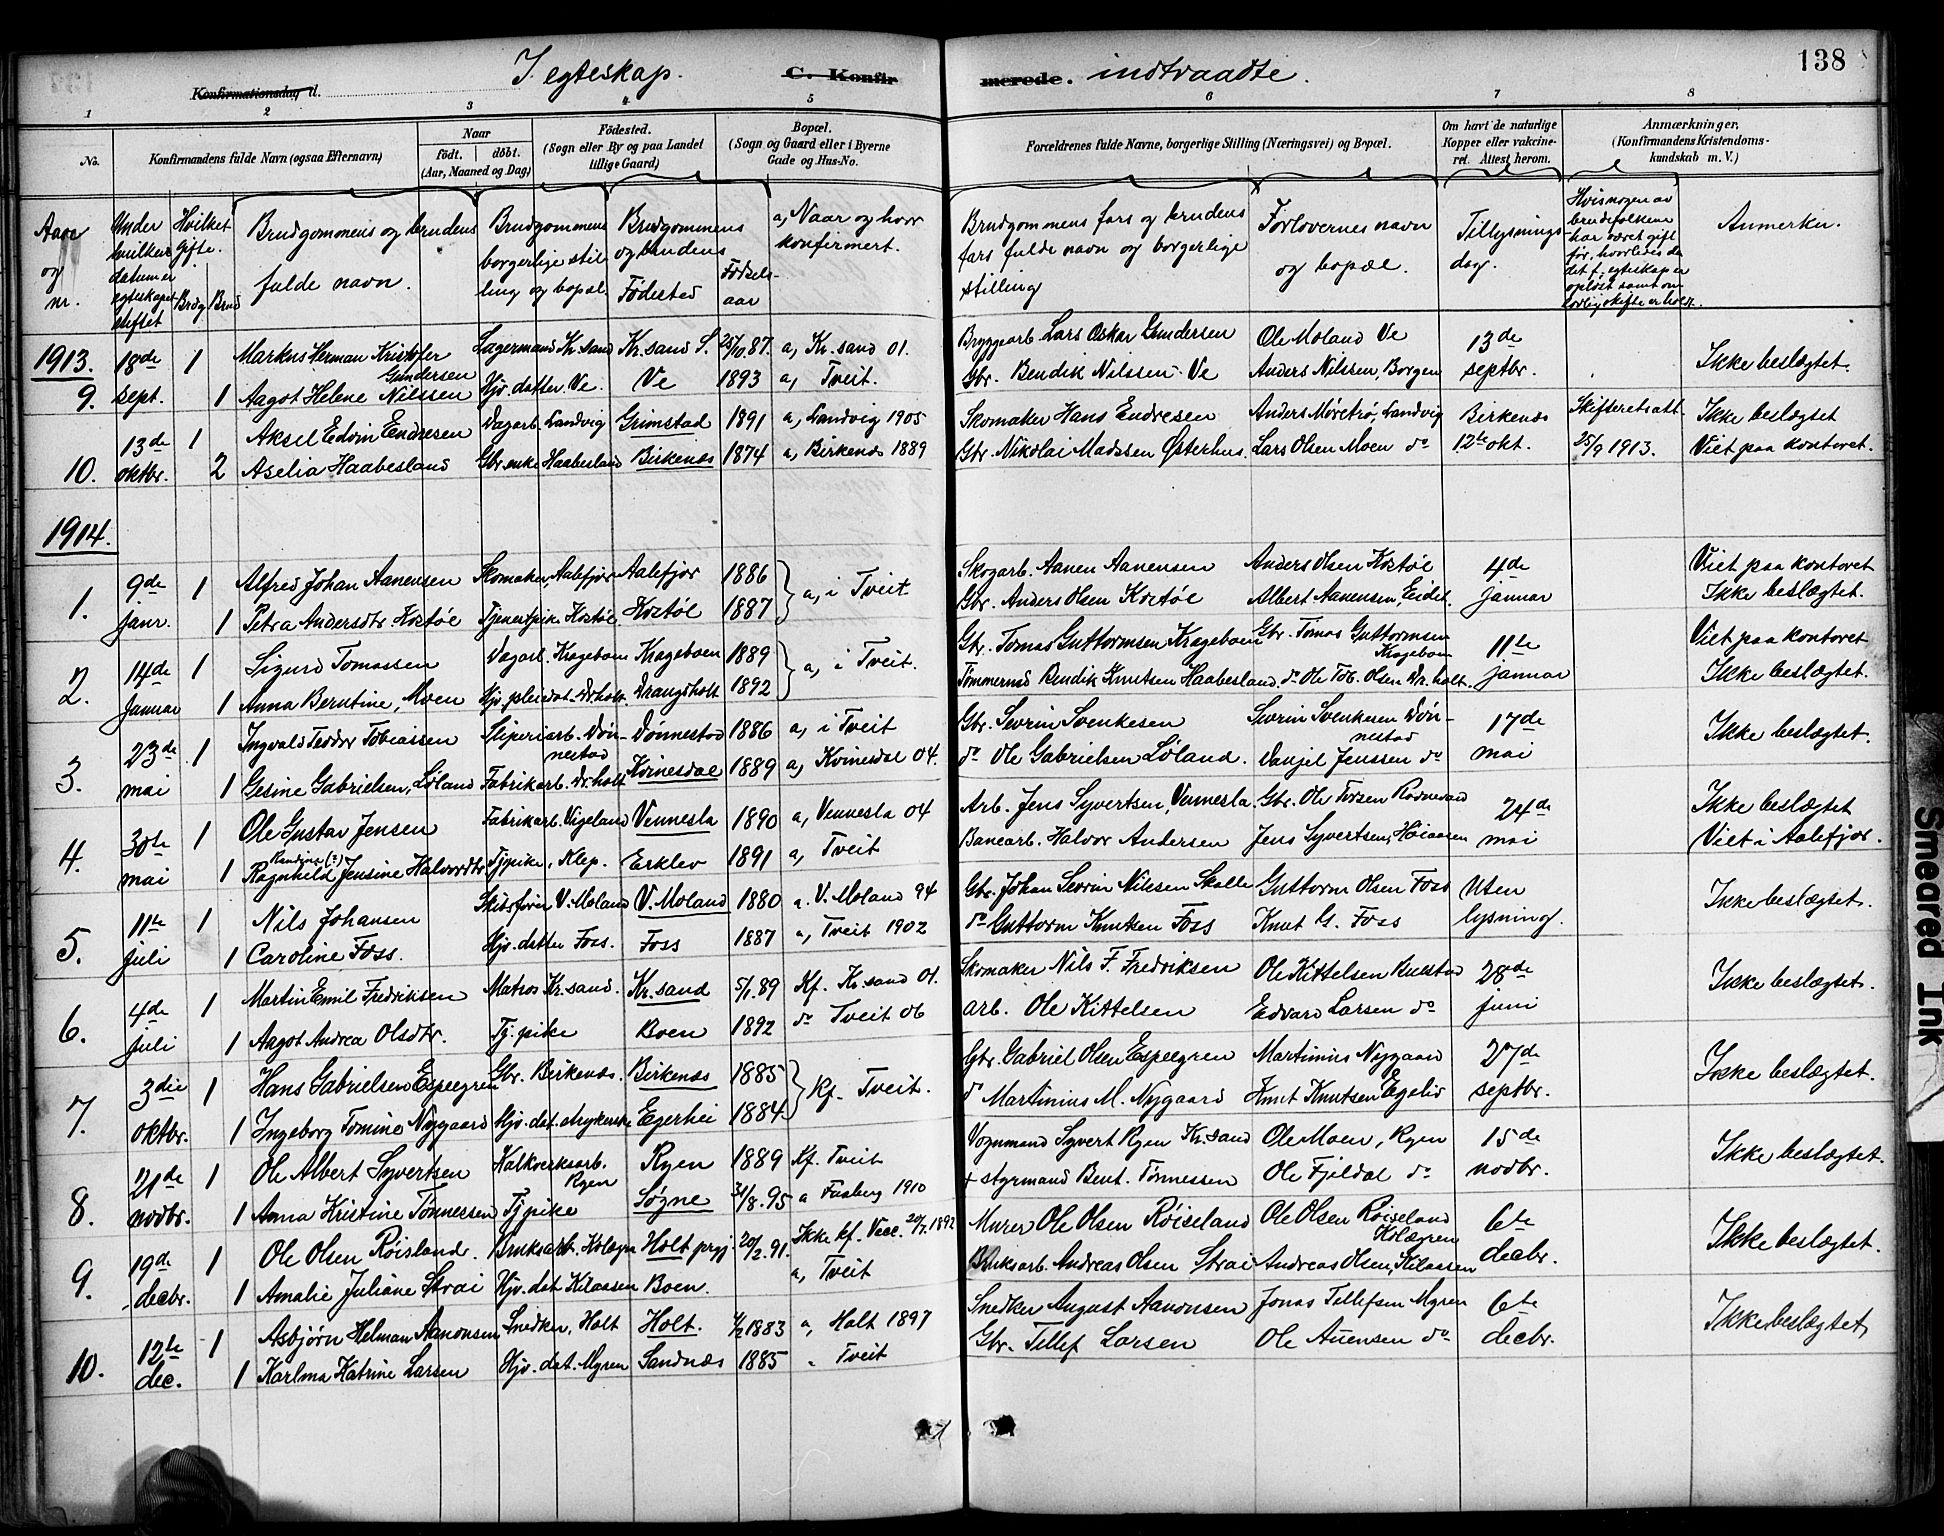 138
I egteskap. C. Konfirmerede. indtraadte.
Konfirmationsdag d.
1 2 3 4 5 6 7 8
No.
Konfirmandens fulde Navn (ogsaa Efternavn)
Naar
født. døbt.
(Aar, Maaned og Dag)
Fødested.
(Sogn eller By og paa Landet
tillige Gaard)
Bopæl.
(Sogn og Gaard eller i Byerne
Gade og Hus-No.
Forældrenes fulde Navne, borgerlige Stilling (Næringsvei) og Bopæl.
Om havt de naturlige
Kopper eller vakcine-
ret. Attest herom.
Anmærkninger,
(Konfirmandens Kristendoms-
kundskab m. V.)
Aar
og
nr.
Under
hvilken
datum er
egteskapet
stiftet
Hvilket
gifte.
Brudg Brud
Brudgommens og brudens
fulde navn.
Brudgommens
borgerlige stil
ling og bopæl.
Brudgommens
og brudens
Fødested
Fødsels-
aar
a, Naar og hvor
konfirmert.
Brudgommens fars og brudens
fars fulde navn og borgerlige
stilling
Forlovernes navn
og bopæl.
Tillysnings
dag.
Hvis nogen av
brudefolkene
har været gift
før, hvorledes de
det f. egteskap er
opløst samt om
lovlig skifte er holdt.
Anmerkn.
1913. 18de 1 Markus Herman Kristofer Gundersen Lagermand Kr.sand Kr.sand S. 25/10.87. a, Kr.sand 01. Bryggearb. Lars Oskar Gundersen Ole Moland Ve 13de Ikke beslægtet.
9. sept. 1 Aagot Helene Nilssen Hjv. datter Ve. Ve 1893 a, Tveit. Gbr. Bendik Nilssen Ve Anders Nilssen, Borgen septbr.
13de 1 Aksel Edvin Endresen Dagarb. Landvig Grimstad 1891 a, Landvig 1905 Skomaker Hans Endresen Anders Møretrø, Landvig Birkenæs Skifteretsatt. Ikke beslægtet
10. oktbr. 2 Aselia Haabesland Gbr. enke Haabesland Birkenæs 1874 a, Birkenæs 1889 Gbr. Nikolai Madssen Østerhus. Lars Olsen Moen do 12te okt. 25/9 1913. Viet paa kontoret.
1914.
1. 9de 1 Alfred Johan Aanensen Skomaker, Aalefjør Aalefjør 1886 a, i Tveit Skogarb. Aanen Aanensen Anders Olsen Kostøl 4de Viet paa kontoret
janr. 1 Petra Andersdtr Kostøl Tjenestpike Kostøl Kostøl 1887 Gbr. Anders Olsen Kostøl Albert Aanensen, Eidet. januar Ikke beslægtet.
2. 14de 1 Sigurd Tomassen Dagarb. Krageboen Krageboen 1889 a, i Tveit. Gbr. Tomas Guttormsen Krageboen Gbr. Tomas Guttormsen Krageboen 11te Viet paa kontoret
Januar 1 Anna Berntine, Moen Hjv. pleiedat. Dr.holt. Drangsholt 1892 Tømmermd Bendik Knutsen Haabesland. do Ole Tob. Olsen Dr.holt. januar Ikke beslægtet.
3. 23de 1 Ingvald Teodor Tobiassen Sliperiarb. Dønnestad Dønnestad 1886 a, i Tveit Gbr. Sevrin Svenkesen Sevrin Svenkesen Dønnestad 17de Ikke beslægtet.
mai 1 Gesine Gabrielsen, Løland Fabrikarb. Dr.holt Kvinesdal 1889 a, Kvinesdal 04. do Ole Gabrielsen Løland. Danjel Jenssen do mai
4. 30te 1 Ole Gustav Jensen Fabrikarb. Vigeland Vennesla 1890 a, Vennesla 04 Arb. Jens Syvertsen, Vennesla. Gbr. Ole Torsen 24de Ikke beslægtet
mai 1 Ragnhild Jensine Halvordtr Tjpike, Klep. Erklev 1891 a, Tveit Banearb. Halvor Andersen Jens Syvertsen, mai Viet i Aalefjør.
5. 11te 1 Nils Johansen V. Moland V. Moland 1880 a. V. Moland 94 Gbr. Johan Sevrin Nilsen Skalle Guttorm Olsen Foss Uten Ikke beslægtet.
juli 1 Caroline Foss. Hjv. datter Foss. Foss 1887 a, Tveit 1902 do Guttorm Knutsen Foss Knut G. Foss lysning.
6. 4de 1 Martin Emil Fredriksen Matros Kr.sand. Kr.sand 5/1.89 Kf. Kr.sand 01. Skomaker Nils F. Fredriksen Ole Kittelsen 28de Ikke beslægtet.
juli 1 Aagot Andrea Olsdtr. Tj.pike Boen 1892 do Tveit 06 arb. Ole Kittelsen Edvard Larsen do juni
7. 3die 1 Hans Gabrielsen Espegren Gbr. Birkenæs. Birkenæs 1885 Kf. Tveit. Gbr. Gabriel Olsen Espegren Martinius Nygaard 27de Ikke beslægtet.
oktbr. 1 Ingeborg Tomine Nygaard Hjv. dat. Egerhei 1884 do Martinius M. Nygaard Knut Knutsen Egelid septbr.
8. 21de 1 Ole Albert Syvertsen Kalkverksarb. Ryen Ryen 1889 Kf. Tveit Vognmand Syvert Ryen Kr.sand Ole Moen, Ryen 15de Ikke beslægtet.
nodbr. 1 Anna Kristine Tønnessen Tjpike Søgne 31/8.95 a Faaberg 1910 + styrmand Bent. Tønnessen Ole Fjeldal do nodbr.
9. 19d 1 Ole Olsen Røisland. Bruksarb. Holt prgj. 20/2.91. Ikke kf. Vacc. 20/7.1892 Murer Ole Olsen Røiseland Ole Olsen Røiseland 6te Ikke beslægtet.
decbr. 1 Amalie Juliane Strai Hjv. dat Kilaasen Boen. a, Tveit Bruksarb. Andreas Olsen Strai Andreas Olsen, Kilaasen decbr.
10. 12te 1 Asbjørn Helman Aanonsen Snedker, Holt Holt. 1/2 1883 a, Holt 1897 Snedker August Aanonsen Jonas Tellefsen Myren 6te Ikke beslægtet
dec. 1 Karlma Katrine Larsen Hjv. dat. Myren Sandnæs 1885 " Tveit Gbr. Tellef Larsen Ole Auensen do decbr.
Smeared Ink